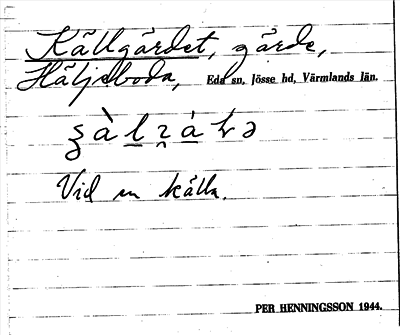 Källgärdet, gärde,
Häljeboda, Eda sn, Jösse hd, Värmlands län.
Vid en källa.
PER HENNINGSSON 1944.